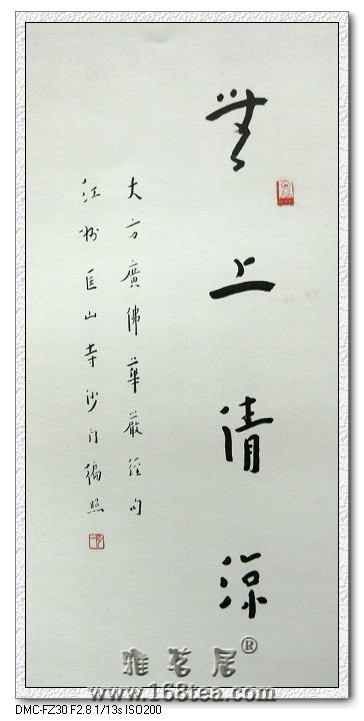 無上清涼
大方廣佛華嚴經句
江州匡山寺沙门徧照
雅茗居®
www.168tea.com
DMC-FZ30 F2.8 1/13s ISO200